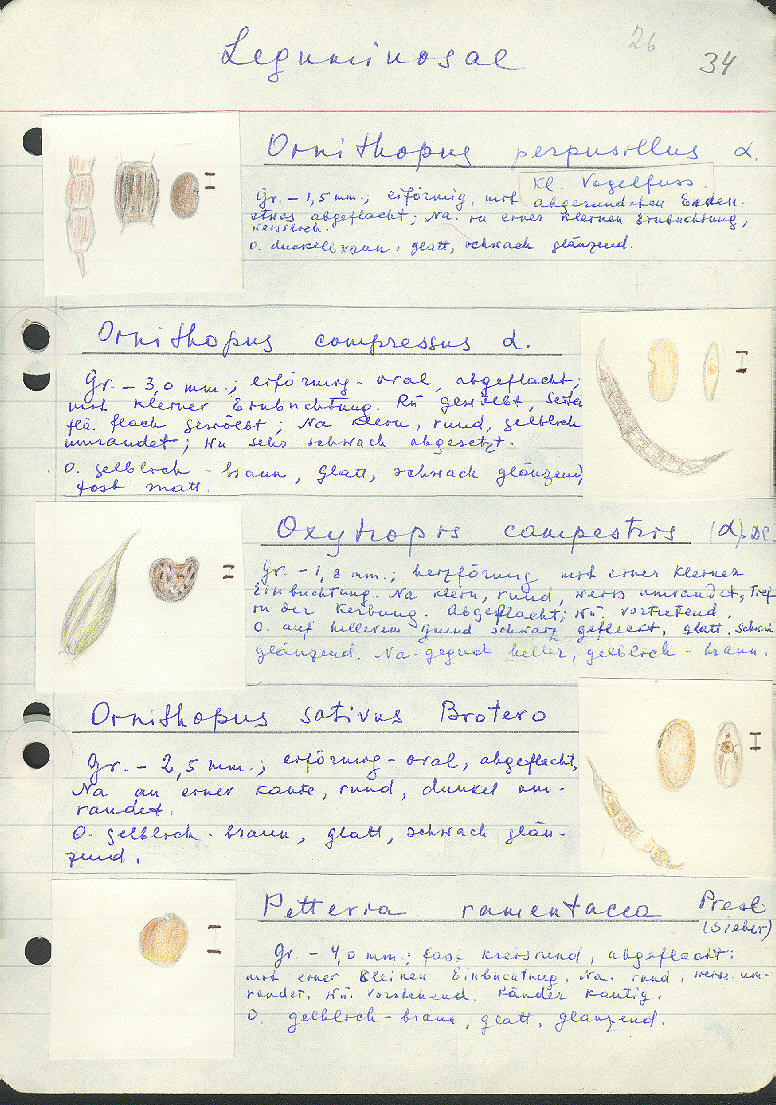 Leguminosae
26
34
Ornithopus perpusillus L.
Kl. Vogelfuss.
Gr. - 1,5 mm.; eiförmig, mit abgerundeten Enden.
etwas abgeflacht; Na. in einer kleinen Einbuchtung,
weisslich.
O. dunkelbraun, glatt, schwach glänzend.
Ornithopus compressus L.
Gr. - 3,0 mm.; eiförmig-oval, abgeflacht,
mit kleiner Einbuchtung. Rü gewölbt, Seiten
flä. flach gewölbt; Na klein, rund, gelblich
umrandet; Wu sehr schwach abgesetzt.
O. gelblich-braun, glatt, schwach glänzend,
fast matt.
Oxytropis campestris (L) DC
Gr. - 1,8 mm.; herzförmig mit einer kleinen
Einbuchtung. Na klein, rund, weiss umrandet, Tief
in der Kerbung. Abgeflacht; Wü. vortretend.
O. auf hellerem Grund schwarz gefleckt, glatt, schwach
glänzend. Na-gegend heller, gelblich-braun.
Ornithopus sativus Brotero
Gr. - 2,5 mm.; eiförmig-oval, abgeflacht,
Na an einer Kante, rund, dunkel um-
randet.
O. gelblich-braun, glatt, schwach glän-
zend.
Petteria ramentacea Presl
(Sieber)
Gr. - 4,0 mm.; fast kreisrund, abgeflacht;
mit einer kleinen Einbuchtung. Na. rund, weiss um-
randet. Wü. vorstehend. Ränder kantig.
O. gelblich-braun, glatt, glänzend.